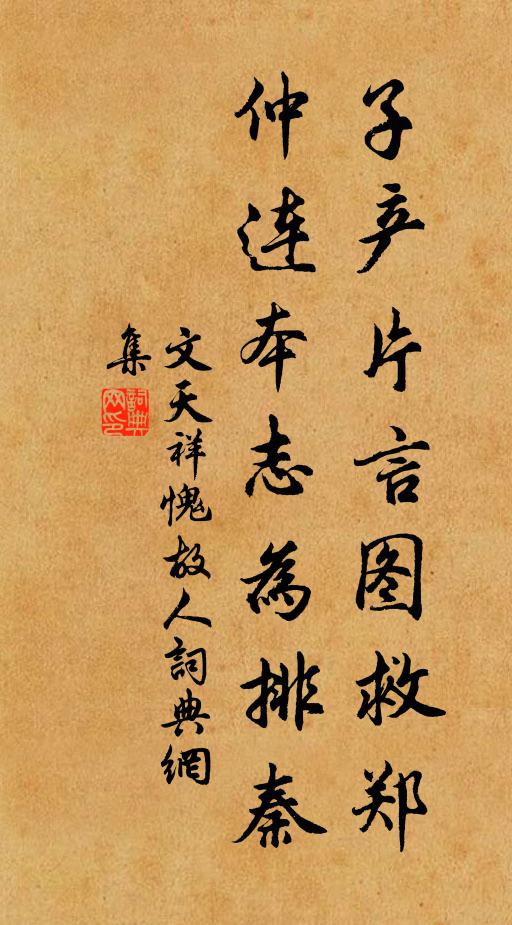 子产片言图救郑
仲连本志為排秦
文天祥愧故人詞典網
集
詞典网印